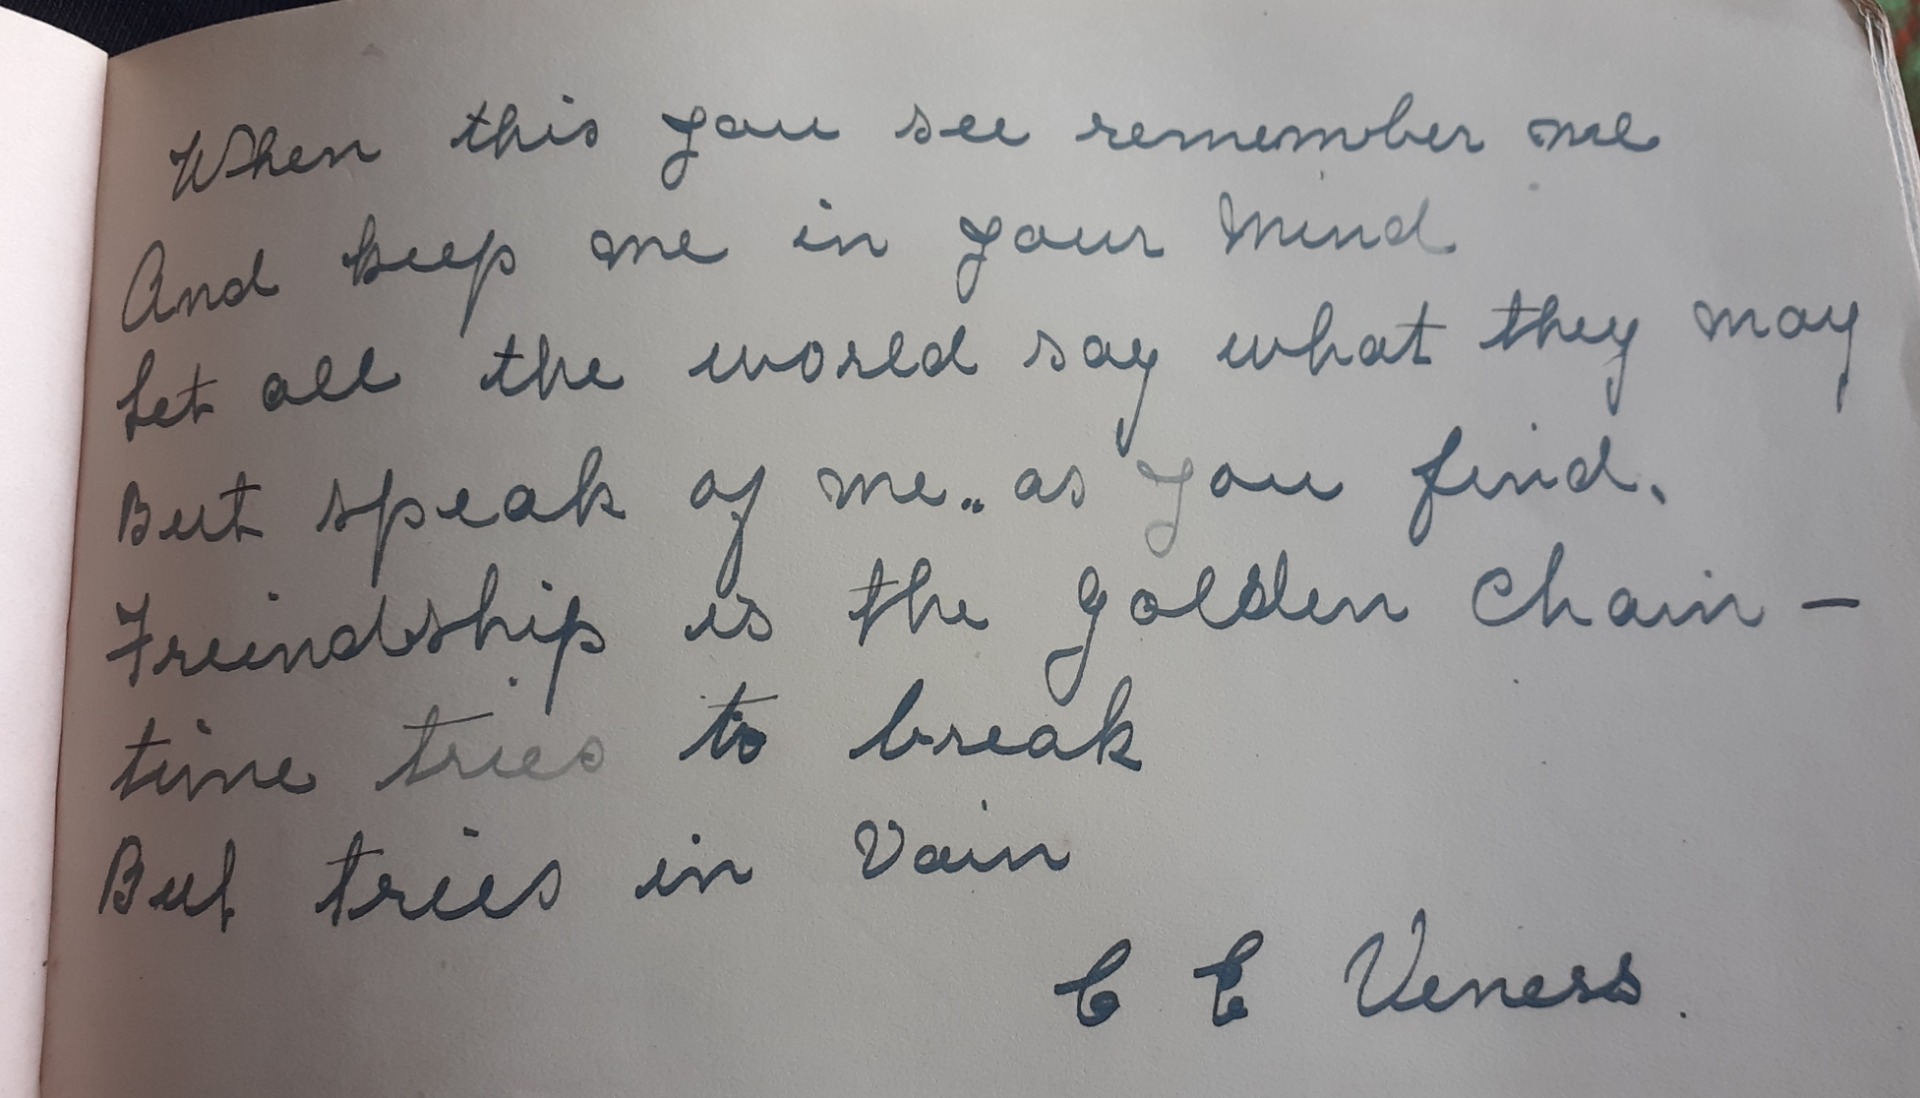 When this you see remember me
And keep me in your Mind
Let all the world say what they may
But speak of me.. as you find.
Freindship is the golden Chain —
time tries to break
But tries in Vain
C E Veness.